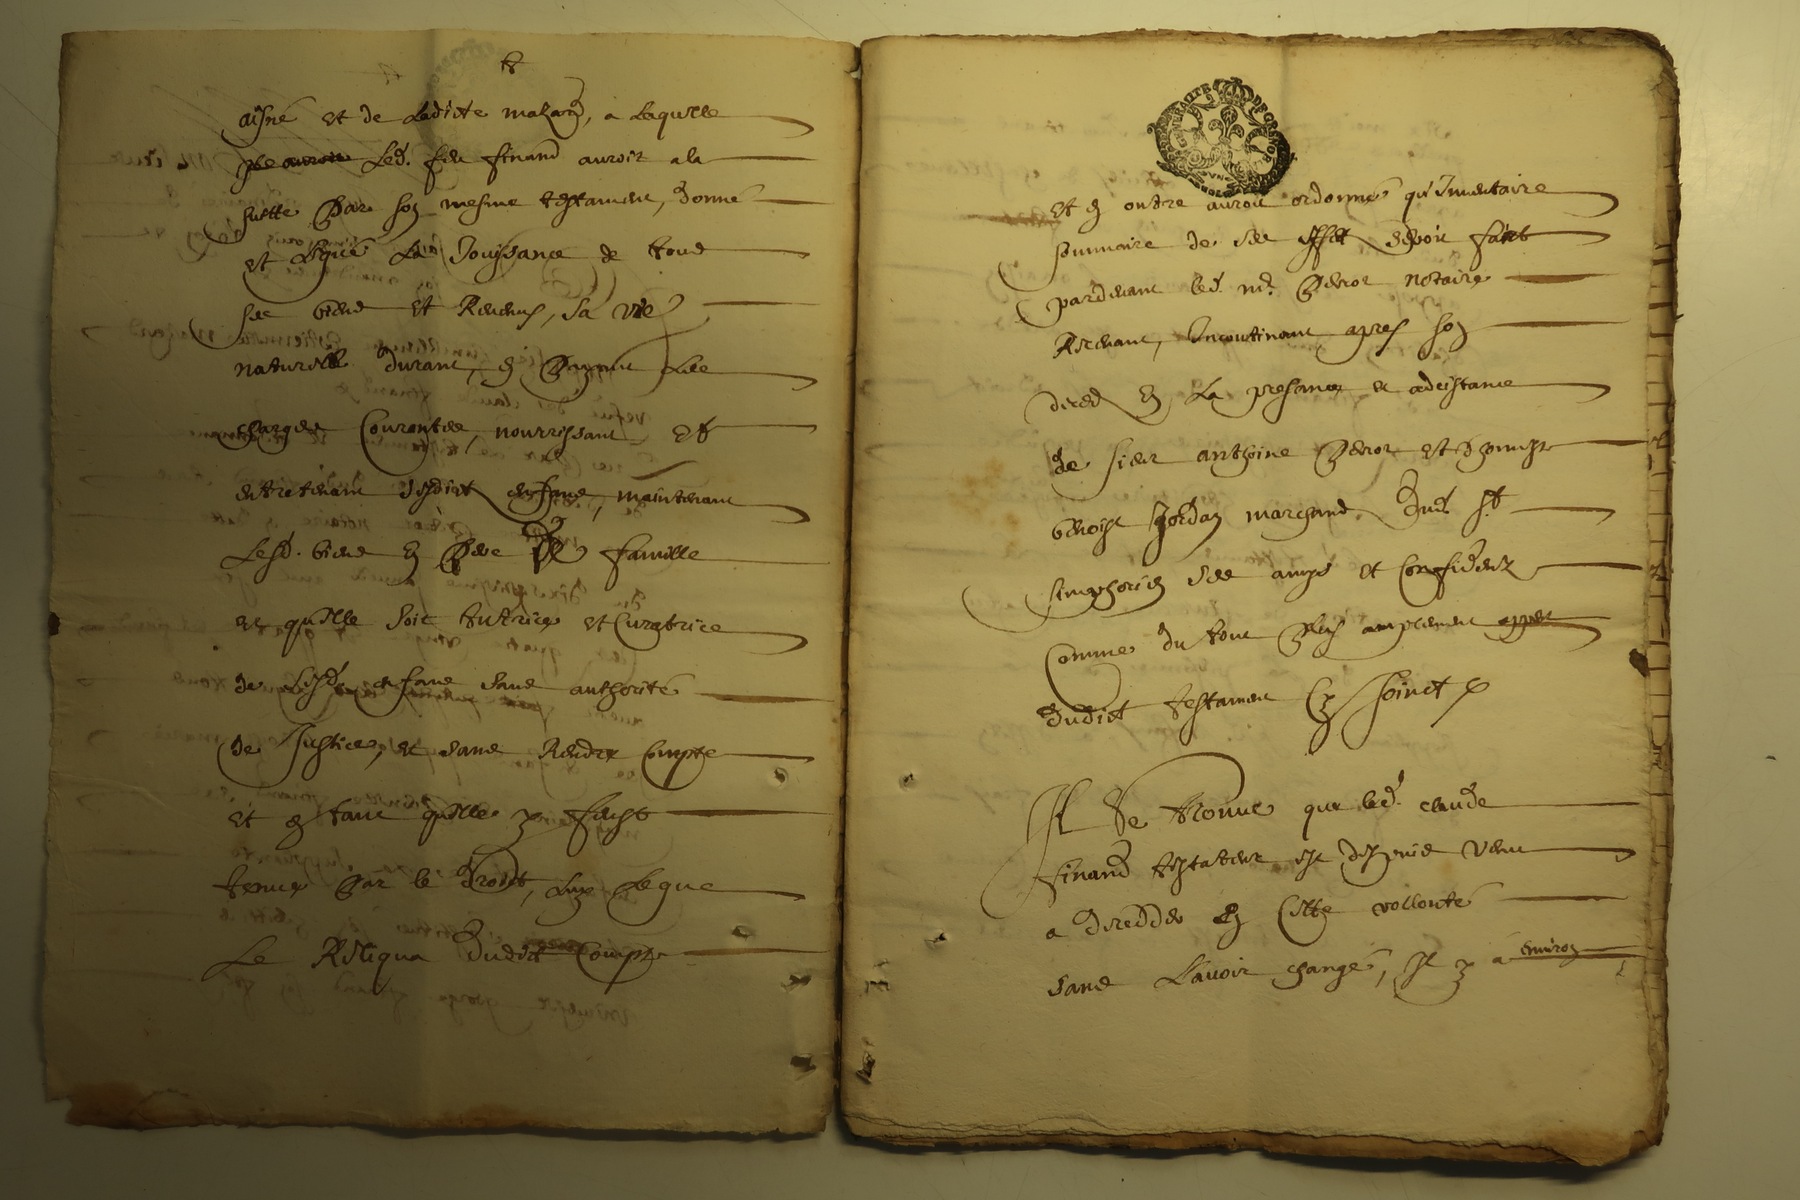 aisné et de ladicte mazard, a laquelle
led. feu finand auroit a la
suitte par son mesme testament, donné
et légué la Jouissance de tous
ses biens et Revenus, sa vie
naturelle durant, en payant les
charges Courantes, nourrissant et
entretenant sesdict enfans, maintenant
Lesd. biens en pere de famille
et quelle soit tutrice et Curatrice
de Lesd. enfans sans authorité
de Justice, et sans Rendre Compte
et en tant quelle y fust
tenue par le droict, luy legue
Le Reliqua dudict Compte
GENERALITE DE GRENOBLE
et en outre auroit ordonné qu'Inventaire
sommaire de ses effect seroit faict
pardevant led. me. notaire
Recevant, Incontinant apres son
deced en La presance et adcistance
de sieur anthoine et
benoist Jordan marchand dud. st
simphorien ses amys et Confidenz
Comme du tout plus amplement appert
dudict testament Cy Joinct
Il se trouve que led. claude
finand testateur est depuis venu
a deceddé en Cette vollonté
sans L'avoir changé, Il y a environ